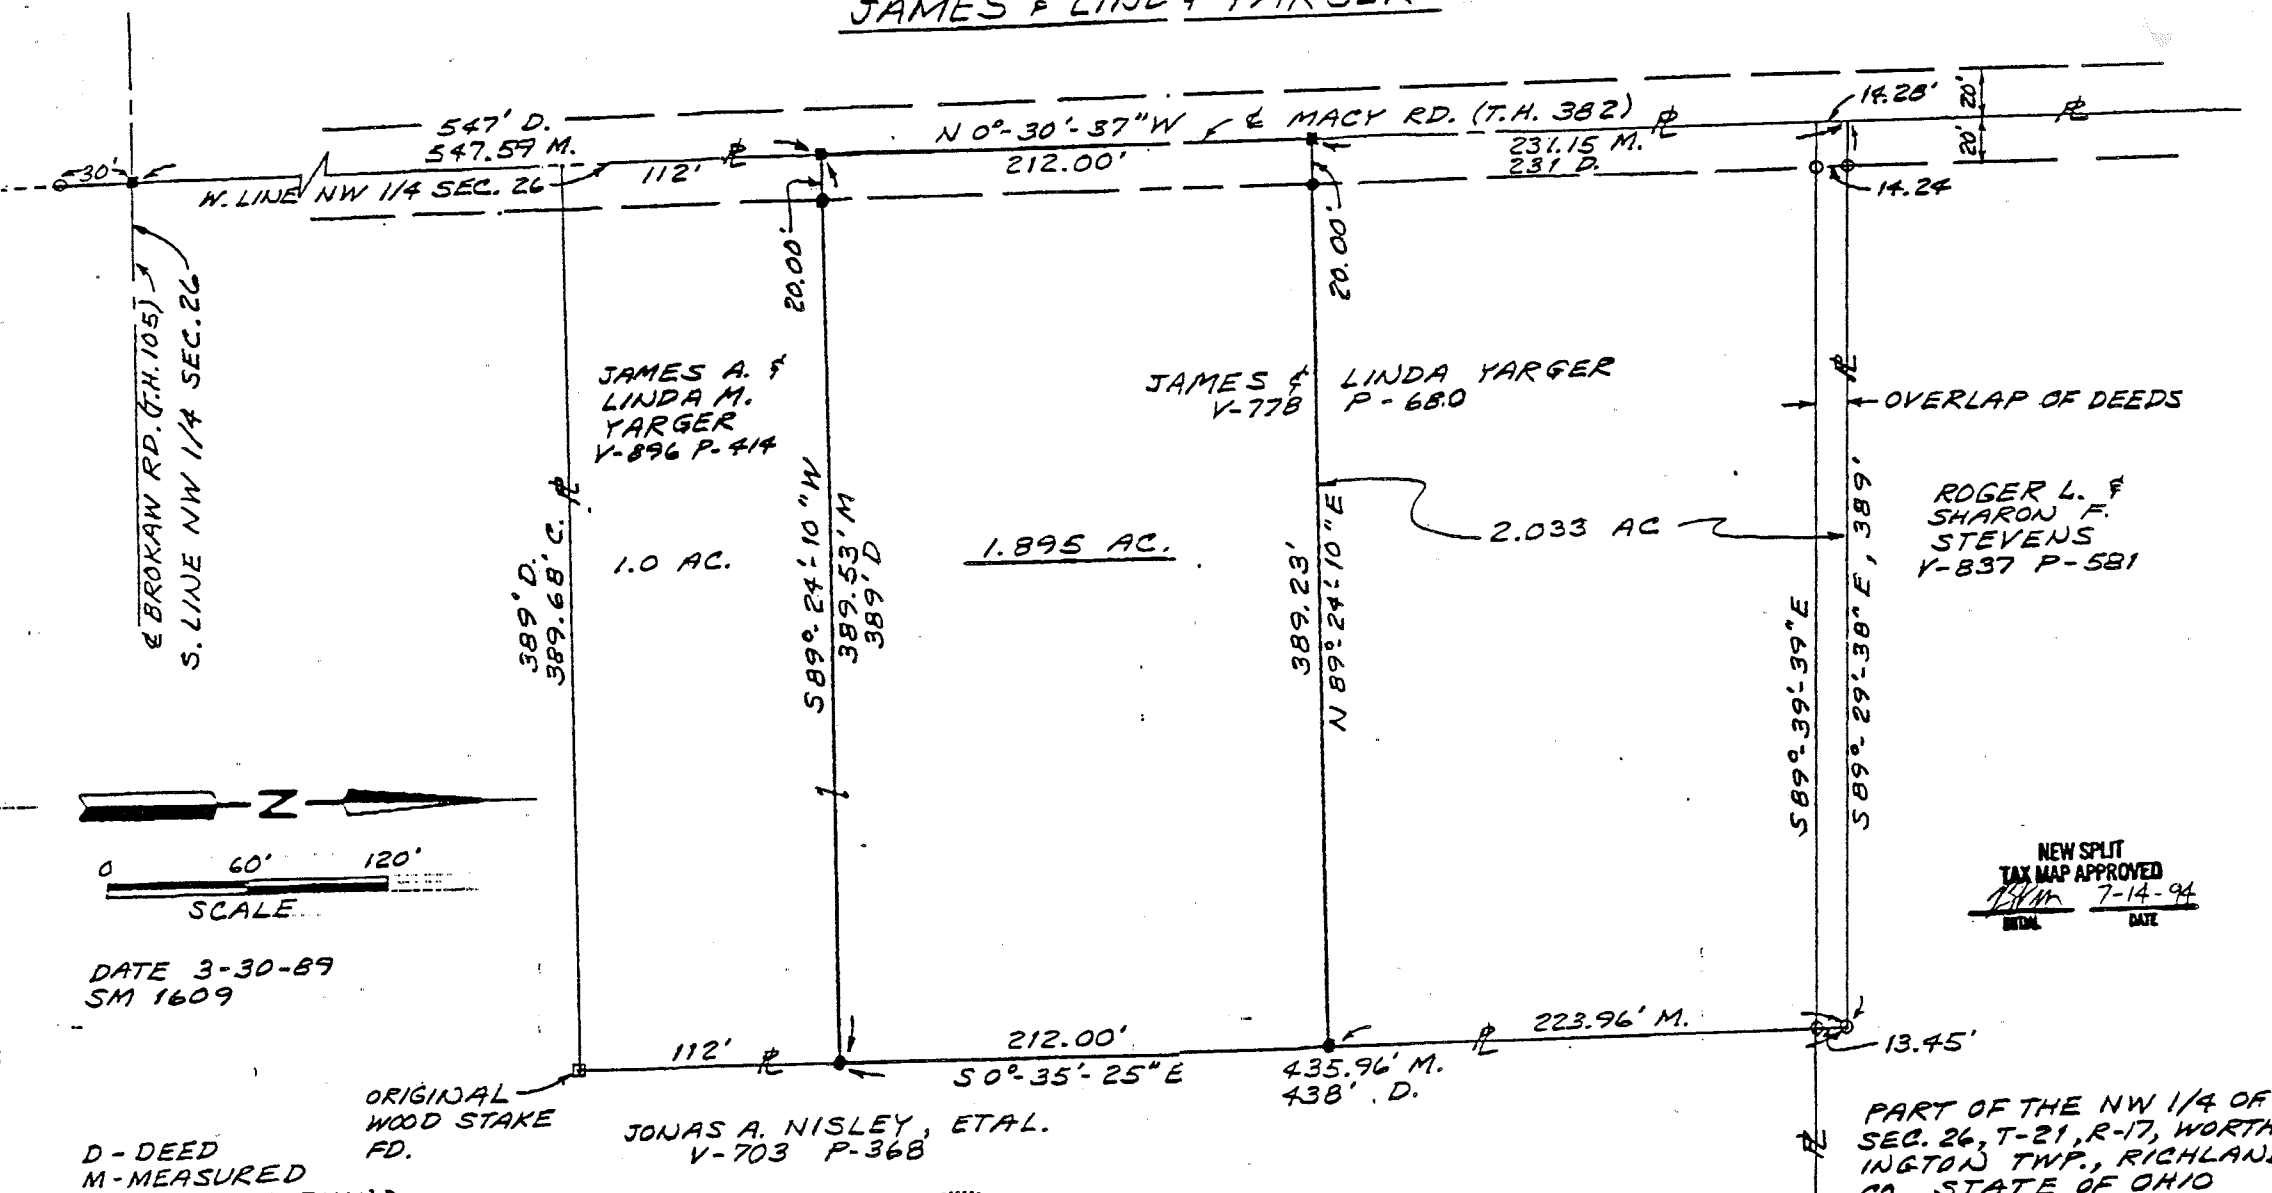 JAMES & LINDA YARGER
547' D.
547.59 M.
30'
W. LINE NW 1/4 SEC. 26
112'
N 0°-30'-37" W
212.00'
℄ MACY RD. (T.H. 382)
231.15 M.
231 D.
14.28'
20'
20'
14.24
20.00'
20.00'
℄ BROKAW RD. (T.H. 105)
S. LINE NW 1/4 SEC. 26
JAMES A. &
LINDA M.
YARGER
V-896 P-414
JAMES & LINDA YARGER
V-778 P-680
OVERLAP OF DEEDS
ROGER L. &
SHARON F.
STEVENS
V-837 P-581
389' D.
389.68' C.
1.0 AC.
S 89°-24'-10" W
389.53' M
389' D
1.895 AC.
389.23'
N 89°-24'-10" E
2.033 AC
S 89°-39'-39" E
S 89°-29'-38" E, 389'
N
0 60' 120'
SCALE
NEW SPLIT
TAX MAP APPROVED
7-14-94
INITIAL DATE
DATE 3-30-89
SM 1609
112'
212.00'
S 0°-35'-25" E
435.96' M.
438'. D.
223.96' M.
13.45'
ORIGINAL
WOOD STAKE
FD.
JONAS A. NISLEY, ETAL.
V-703 P-368
D - DEED
M - MEASURED
PART OF THE NW 1/4 OF
SEC. 26, T-21, R-17, WORTH-
INGTON TWP., RICHLAND
CO., STATE OF OHIO